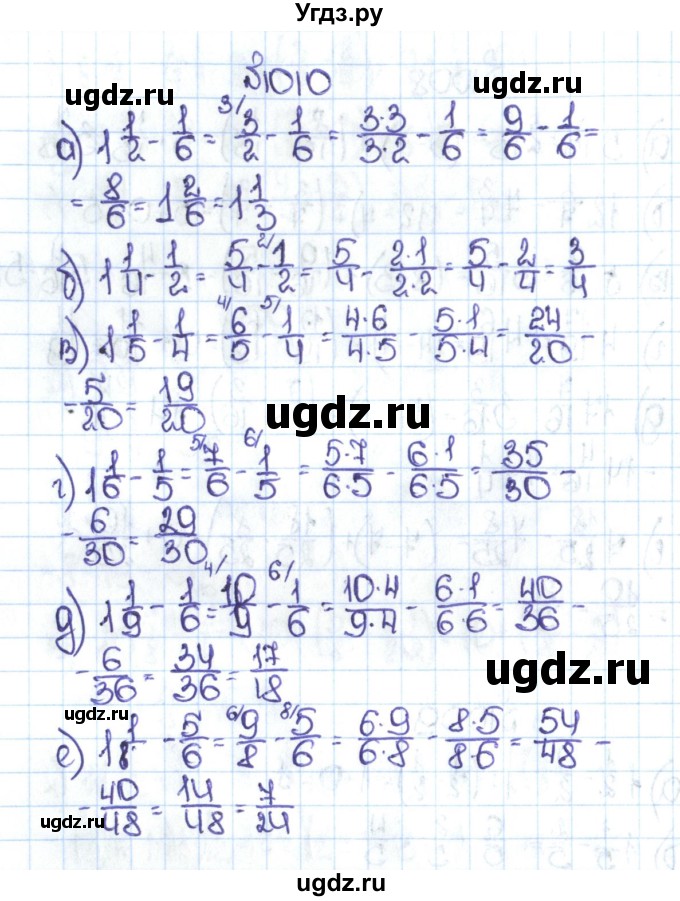 Угдз.ру
№1010
ugdz.ru
а) 1 1/2 - 1/6 = 3/ 3/2 - 1/6 = 3·3/3·2 - 1/6 = 9/6 - 1/6 =
= 8/6 = 1 2/6 = 1 1/3
б) 1 1/4 - 1/2 = 5/4 - 2/ 1/2 = 5/4 - 2·1/2·2 = 5/4 - 2/4 = 3/4
в) 1 1/5 - 1/4 = 4/ 6/5 - 5/ 1/4 = 4·6/4·5 - 5·1/5·4 = 24/20 -
- 5/20 = 19/20
ugdz.ru
г) 1 1/6 - 1/5 = 5/ 7/6 - 6/ 1/5 = 5·7/6·5 - 6·1/6·5 = 35/30 -
- 6/30 = 29/30
д) 1 1/9 - 1/6 = 4/ 10/9 - 6/ 1/6 = 10·4/9·4 - 6·1/6·6 = 40/36 -
- 6/36 = 34/36 = 17/18
ugdz.ru
е) 1 1/8 - 5/6 = 6/ 9/8 - 8/ 5/6 = 6·9/6·8 - 8·5/8·6 = 54/48 -
- 40/48 = 14/48 = 7/24
ugdz.ru
ugdz.ru
ugdz.ru